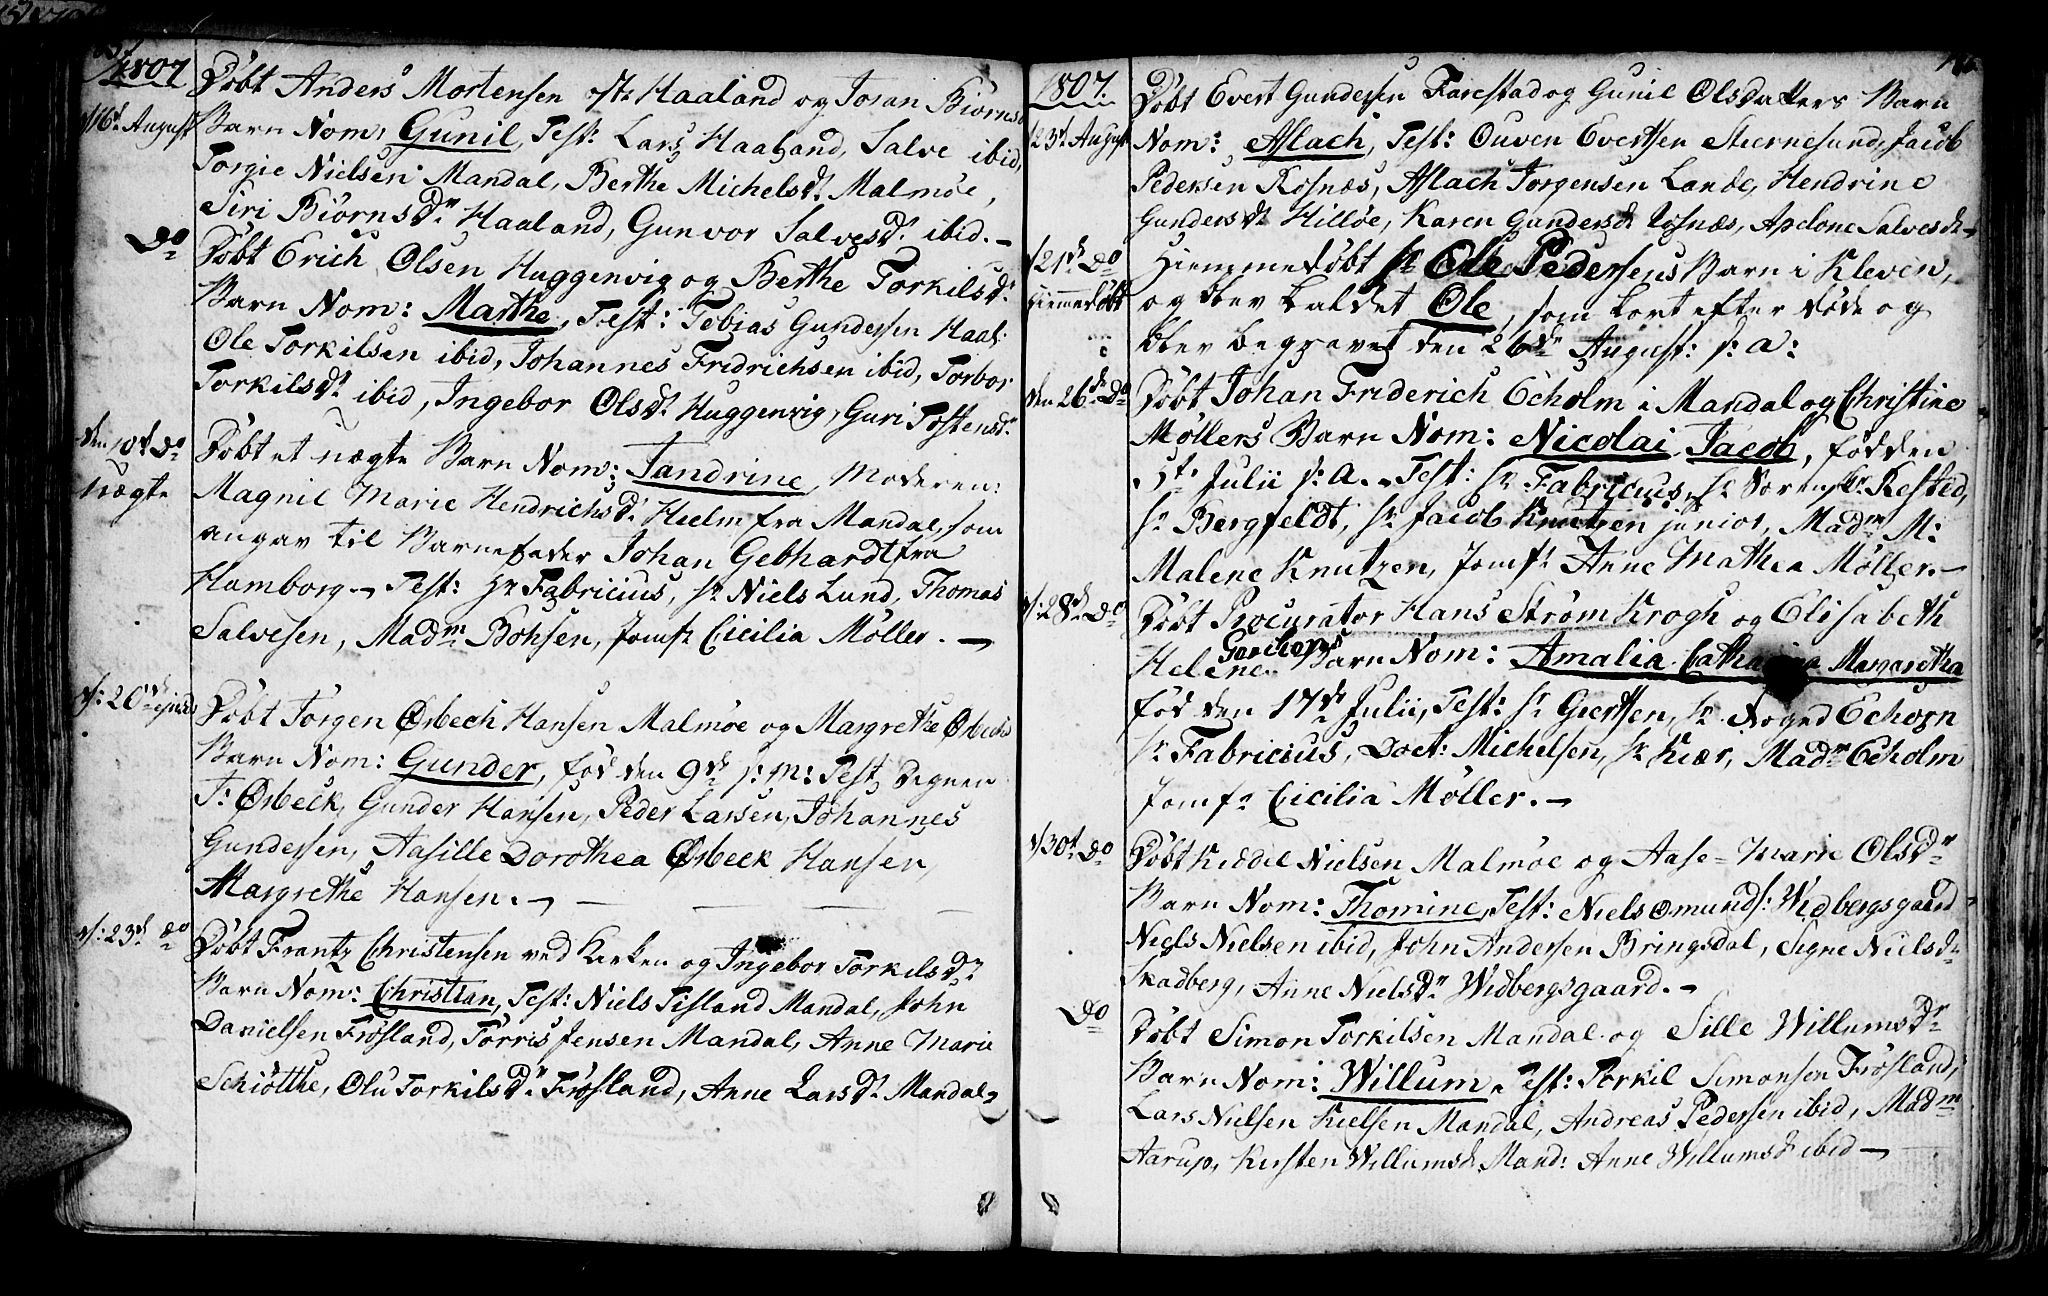 1807
d: 16d August
Døbt Anders Mortensen Haaland og Joran Biørnsd
Barn Nom: Gunil, Test: Lars Haaland, Salve ibid,
Torgie Nielsen Mandal, Berthe Michelsdr Malmøe,
Siri Biørnsdr Haaland, Gunvor Salvesdr ibid. —
Do
Døbt Erich Olsen Huggenvig og Berthe Torkilsdr
Barn Nom: Marthe, Test: Tobias Gundersen Haal:
Ole Torkilsen ibid, Johannes Fridrichsen ibid, Torbor
Torkilsdr ibid, Ingebor Olsdr Huggenvig, Guri Tostensdr
den Do
uægte
Døbt et uægte Barn Nom: Tandrine, Moderen:
Magnil Marie Hendrichsdr Hielm fra Mandal, som
angav til Barnefader Johan Gebhardt fra
Hamborg — Test: Hr Fabricius, Hr Niels Lund, Thomas
Salvesen, Madm Bohsen, Jomfr Cicilia Møller. —
d: 20de ejusd
Døbt Jørgen Ørbech Hansen Malmøe og Margrethe Ørbechs
Barn Nom: Gunder, fød den 9de s: M: Test, Degnen
T: Ørbeck, Gunder Hansen, Peder Larsen, Johannes
Gundersen, Aasille Dorothea Ørbeck Hansen,
Margrethe Hansen. —
d: 23d do
Døbt Frantz Christensen ved Kirken og Ingebor Torkilsdr
Barn Nom: Christian, Test: Niels Tisland Mandal, John
Danielsen Frøsland, Torris Jensen Mandal, Anne Marie
Schiøtthe, Olu Torkilsdr Frøsland, Anne Larsdr Mandal.
1807.
d 23d August
Døbt Evert Gundersen Farestad og Gunil Olsdatters Barn
Nom: Aslach, Test: Ouven Evertsen Stiernesund, Jacob
Pedersen Rosnæs, Aslach Jorgensen Lande, Hendrine
Gundersdr Hilløe, Karen Gundersdr Rosnæs, Apelone Salvesdr
d 21de Do
Hiemmedøbt
Hiemmedøbt Sr Ole Pedersens Barn i Kleven,
og blev kaldet Ole, som kort efter døde og
blev begravet den 26de August: s: a:
den 26de Do
Døbt Johan Friderich Echolm i Mandal og Christine
Møllers Barn Nom: Nicolai Jacob, fød den
Julii s: a. Test: Hr Fabricius, Hr Søren Kested,
Sr Bergfeldt, Sr Jacob Knutzen junior, Madm M:
Malene Knutzen, Jomfr Anne Mathea Møller. —
d: 28de Do
Døbt Procurator Hans Strøm Krogh og Elisabeth
Helene Barn Nom: Amalia Catharina Margaretha
fød den 17de Julii, Test: Hr Giertsen, Hr Foged Echorn
Hr Fabricius, Doct: Michelsen, Hr Kiær, Madm Echolm
Jomfr Cicilia Møller. —
d 30t Do
Døbt Kiddel Nielsen Malmøe og Aase-Marie Olsdr
Barn Nom: Thomine, Test: Niels Omunds: Widbergsgaard
Niels Nielsen ibid, John Andersen Bringsdal, Signe Nielsdr
Skadberg, Anne Nielsdr Widbergsgaard. —
Do
Døbt Simon Torkilsen Mandal og Sille Willumsdr
Barn Nom: Willum, Test: Torkil Simonsen Frøsland,
Lars Nielsen Kielsen Mandal, Andreas Pedersen ibid, Madm
Aarup, Kirsten Willumsdr Mand: Anne Willumsdr ibid —